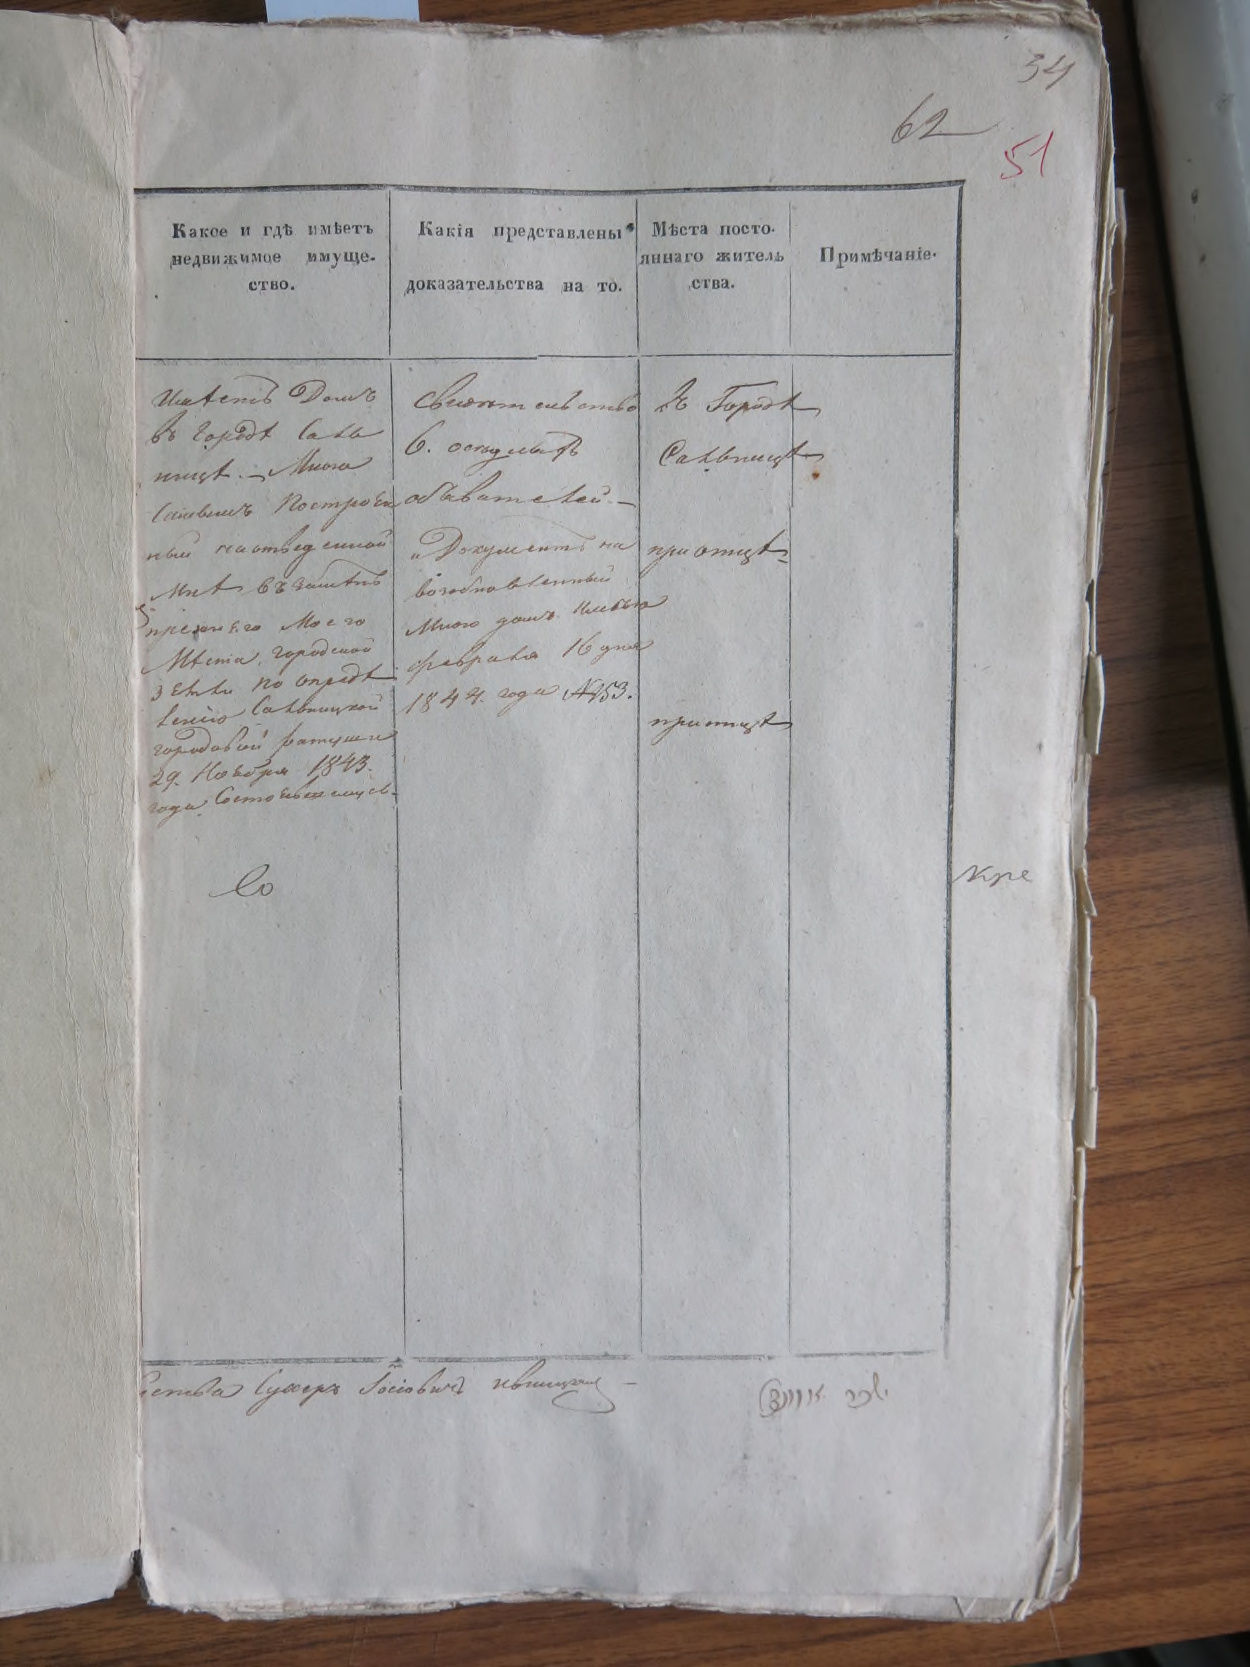 34
62
51
Какое и гдѣ имѣетъ
недвижимое имуще-
ство.
Какія представлены
доказательства на то.
Мѣста посто-
яннаго житель
ства.
Примѣчаніе.
Имѣетъ Домъ
въ городѣ Саль
ницѣ. Мною
самымъ Построен
ный на отведенной
мнѣ въ замѣнъ
прежнего Моего
Мѣста, городской
земли по опредѣ
ленію Сальницкой
городовой ратуши
29. Ноября 1843.
года
Свидѣтельство
6. осѣдлыхъ
обывателей.—
и Документъ на
возобновленный
Мною домъ
февраля 16 дня
1844. года №153.
Въ Городѣ
Сальницѣ
при отцѣ
при отцѣ
Со
кре